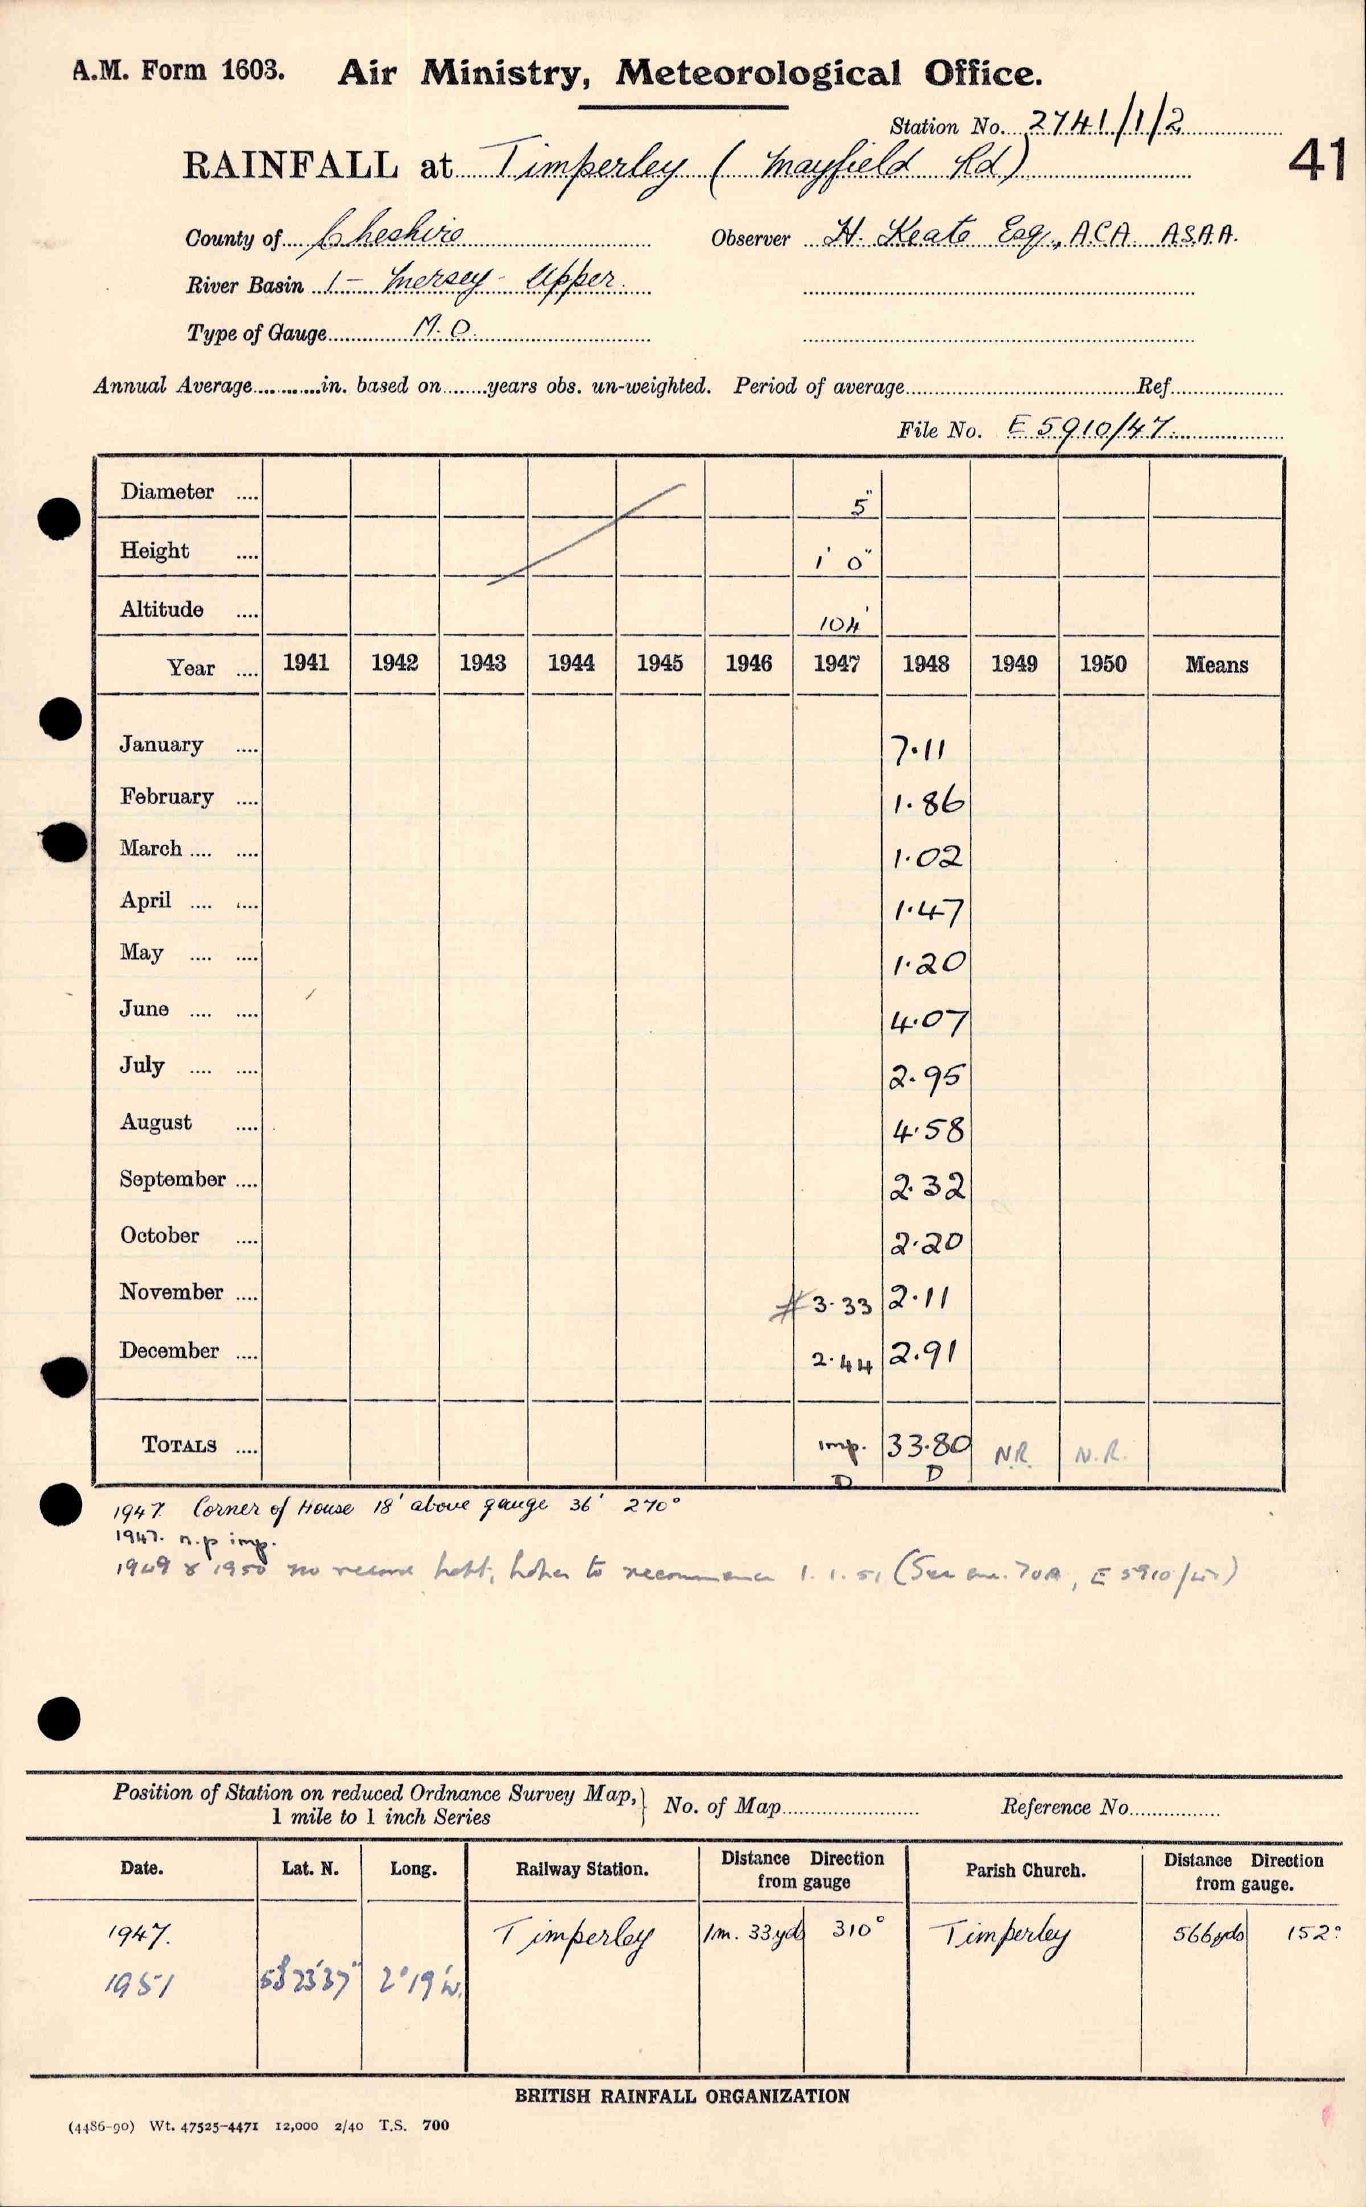 A.M. Form 1603. Air Ministry, Meteorological Office.
Station No. 2741/1/2
RAINFALL at Timperley (Mayfield Rd)
41
County of Cheshire Observer H. Keate Esq., A.C.A. A.S.A.A.
River Basin 1 - Mersey - Upper.
Type of Gauge M.O.
Annual Average in. based on years obs. un-weighted. Period of average Ref
File No. E 5910/47
Diameter .... 5"
Height .... 1' 0"
Altitude .... 104'
Year .... 1941 1942 1943 1944 1945 1946 1947 1948 1949 1950 Means
January .... 7.11
February .... 1.86
March .... .... 1.02
April .... .... 1.47
May .... .... 1.20
June .... .... 4.07
July .... .... 2.95
August .... 4.58
September .... 2.32
October .... 2.20
November .... # 3.33 2.11
December .... 2.44 2.91
TOTALS .... imp. 33.80 N.R. N.R.
D D
1947. Corner of House 18' above gauge 36' 270°
1947. n.p imp.
1949 & 1950 no record kept, hopes to recommence 1.1.51 (See enc. 70A, E 5910/47)
Position of Station on reduced Ordnance Survey Map, } No. of Map Reference No.
1 mile to 1 inch Series
Date. Lat. N. Long. Railway Station. Distance Direction from gauge Parish Church. Distance Direction from gauge.
1947. Timperley 1m. 33yds 310° Timperley 566yds 152°
1951 53°23'37" 2°19'W.
BRITISH RAINFALL ORGANIZATION
(4486-90) Wt. 47525-4471 12,000 2/40 T.S. 700